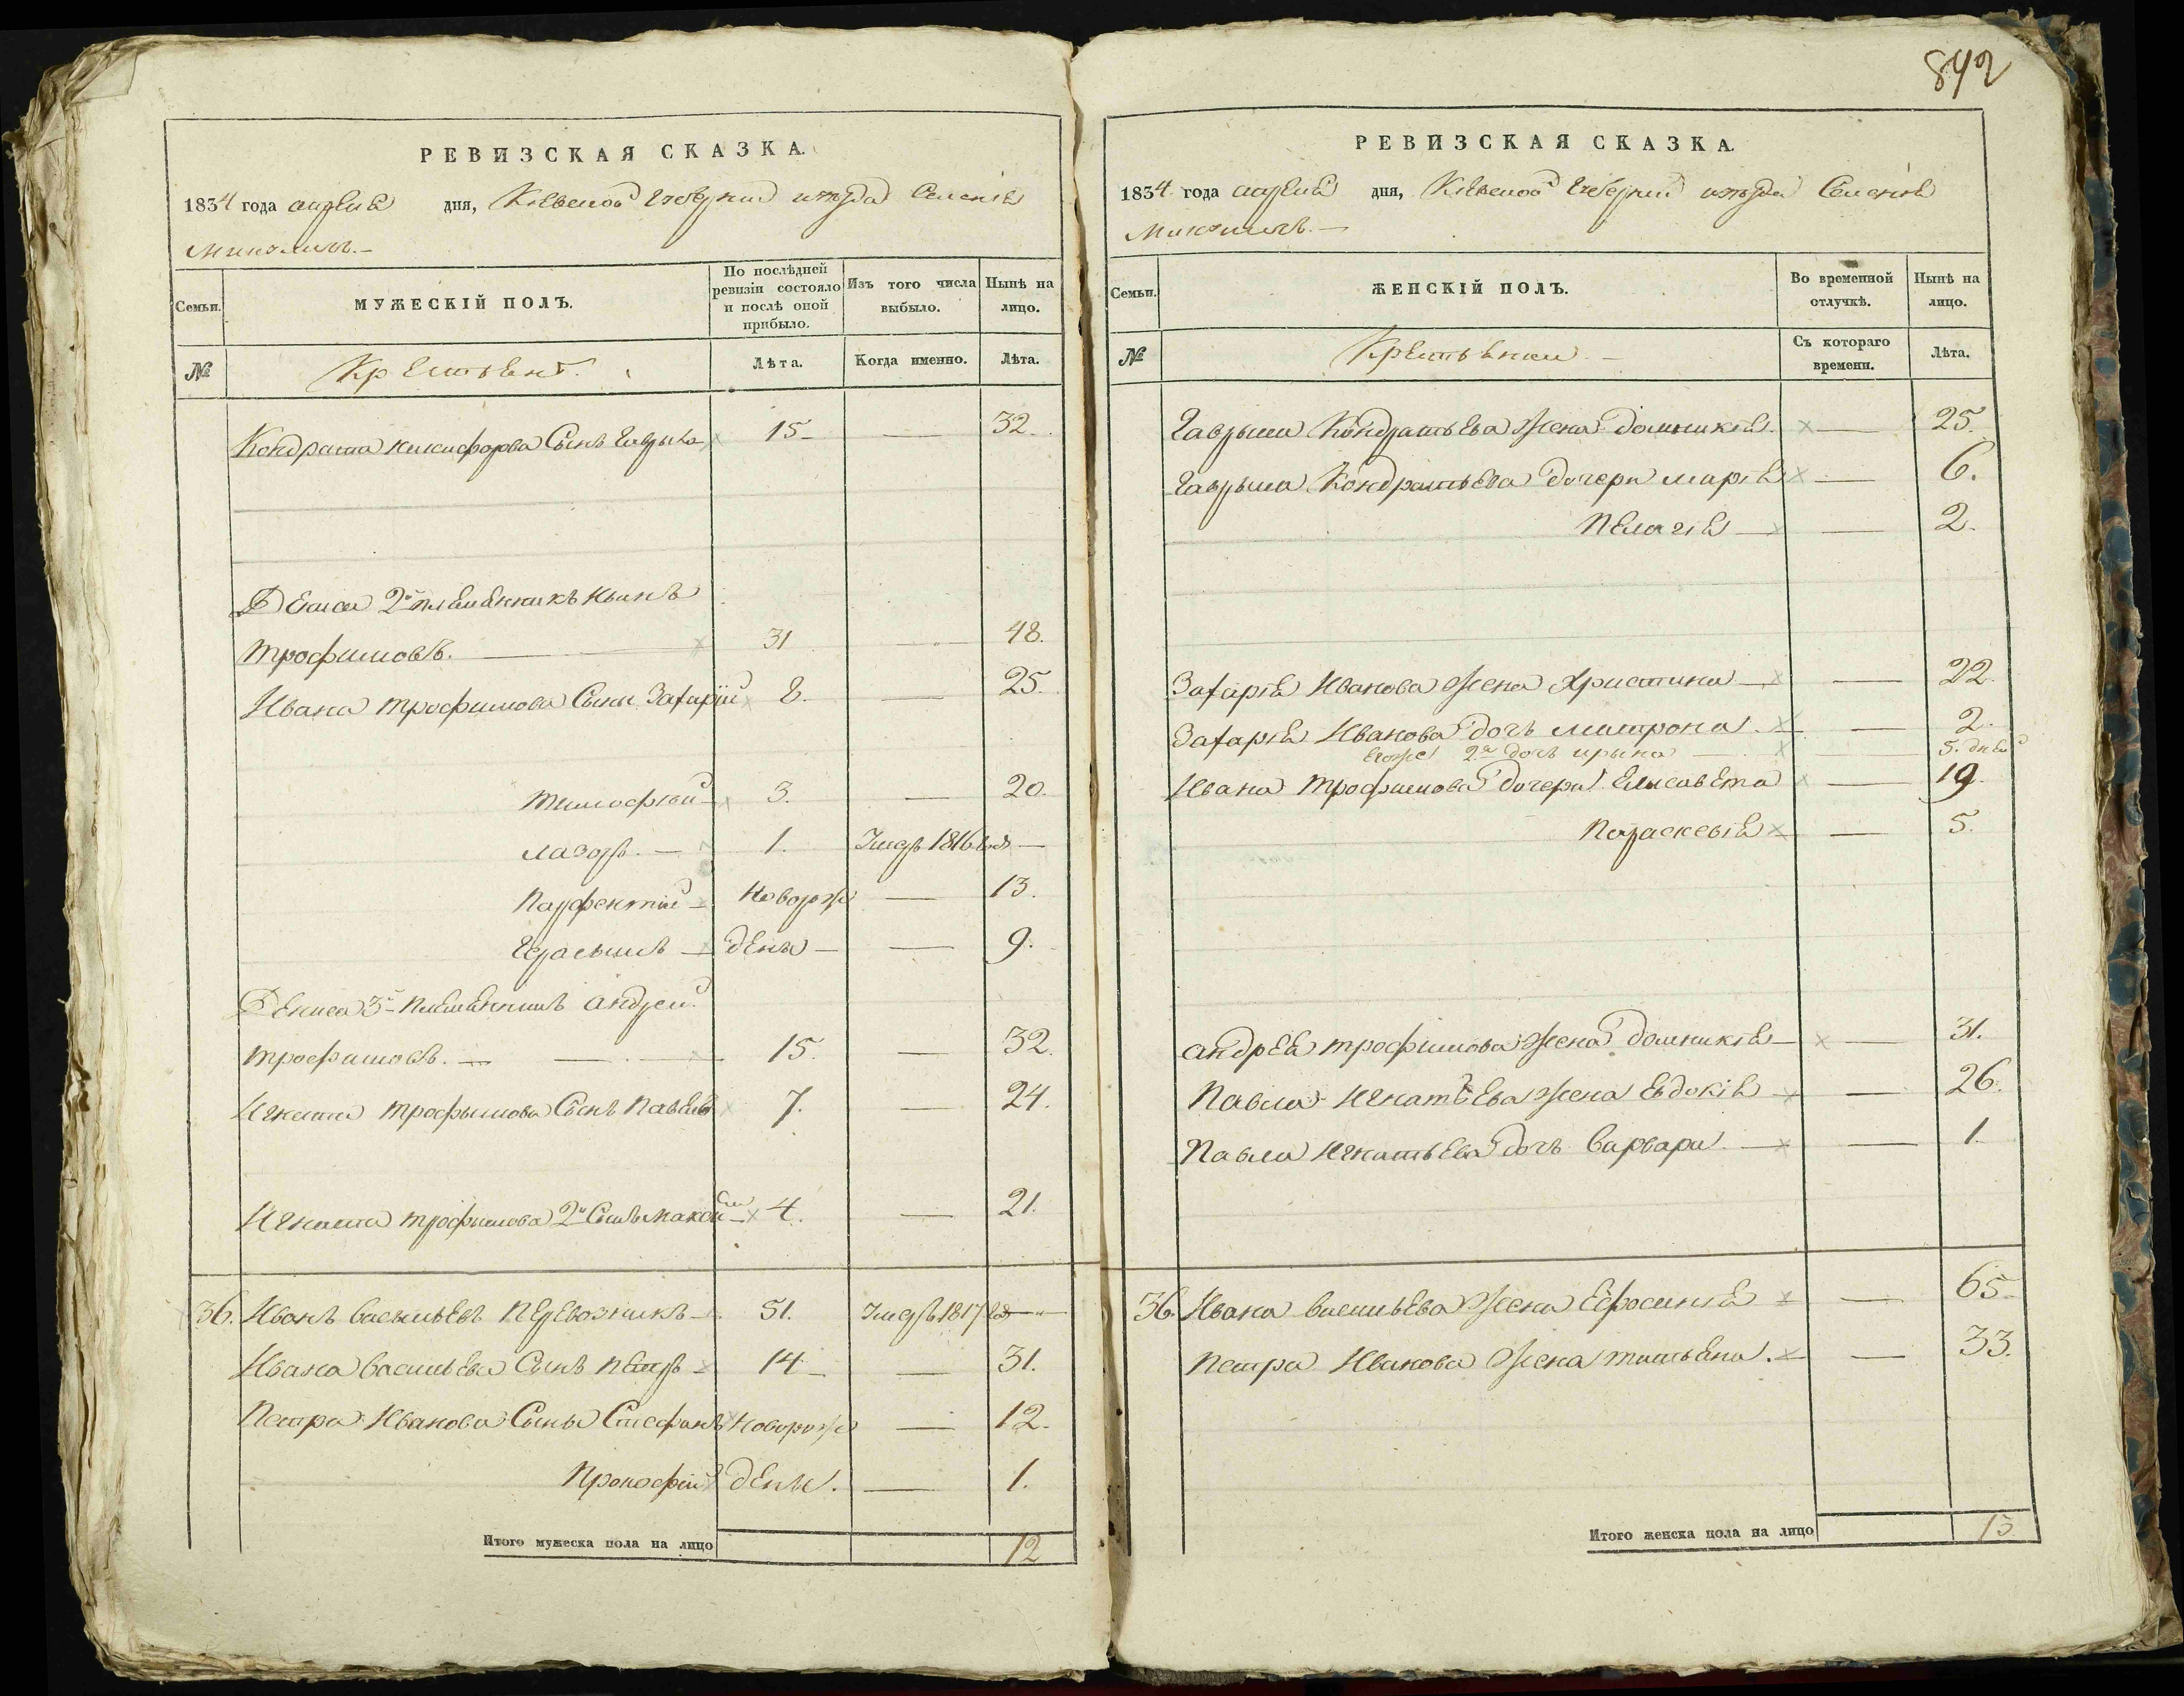 892
РЕВИЗСКАЯ СКАЗКА.
1834 года апреля дня, Киевской Губернии уезда Селенія
Семьи.
МУЖЕСКІЙ ПОЛЪ.
По послѣдней ревизіи состояло и послѣ оной прибыло.
Изъ того числа выбыло.
Нынѣ на лицо.
№
Крестьянъ.
Лѣта.
Когда именно.
Лѣта.
Кондрата Никифорова Сынъ Гаврыло 15 — 32.
Дениса 2й племенникъ Иванъ
Трофимовъ. 31 — 48.
Ивана Трофимова Сыны Захарій 8. — 25.
Тимофей 3. — 20.
Лазорь. — 1. Умеръ 1816 года —
Парфентий — Новорож — 13.
Герасымъ — дены — — 9.
Дениса 3й племенникъ Андрей
Трофимовъ. — 15. — 32.
Игната Трофымова Сынъ Павелъ 7. — 24.
Игната Трофымова 2й Сынъ Мокей 4. — 21.
36. Иванъ Васильевъ Перевозникъ — 51. Умеръ 1817 —
Ивана Васильева Сынъ Петръ — 14 — — 31.
Петра Иванова Сыны Стефанъ Новорож — 12.
Прокофій дены. — 1.
Итого мужеска пола на лицо 12
РЕВИЗСКАЯ СКАЗКА.
1834 года апреля дня, Киевской Губернии уезда Селенія
Семьи.
ЖЕНСКІЙ ПОЛЪ.
Во временной отлучкѣ.
Нынѣ на лицо.
№
Крестьянки. —
Съ котораго времени.
Лѣта.
Гаврыла Кондратьева Жена Домникія. — 25.
Гаврыла Кондратьева дочери Марія — 6.
Пелагія — — 2.
Захарія Иванова Жена Христина — — 22.
Захарія Иванова дочь Матрона. — — 2.
Егоже 2я дочь Ирына — 5. дней
Ивана Трофимова дочери Елисавета — 19.
Параскевія — — 5.
Андрея Трофимова Жена Домникія — — 31.
Павла Игнатьева Жена Евдокія — — 26.
Павла Игнатьева дочь Варвара. — — 1.
36. Ивана Васильева Жена Ефросинія — 65.
Петра Иванова Жена Татьяна. — — 33.
Итого женска пола на лицо 13